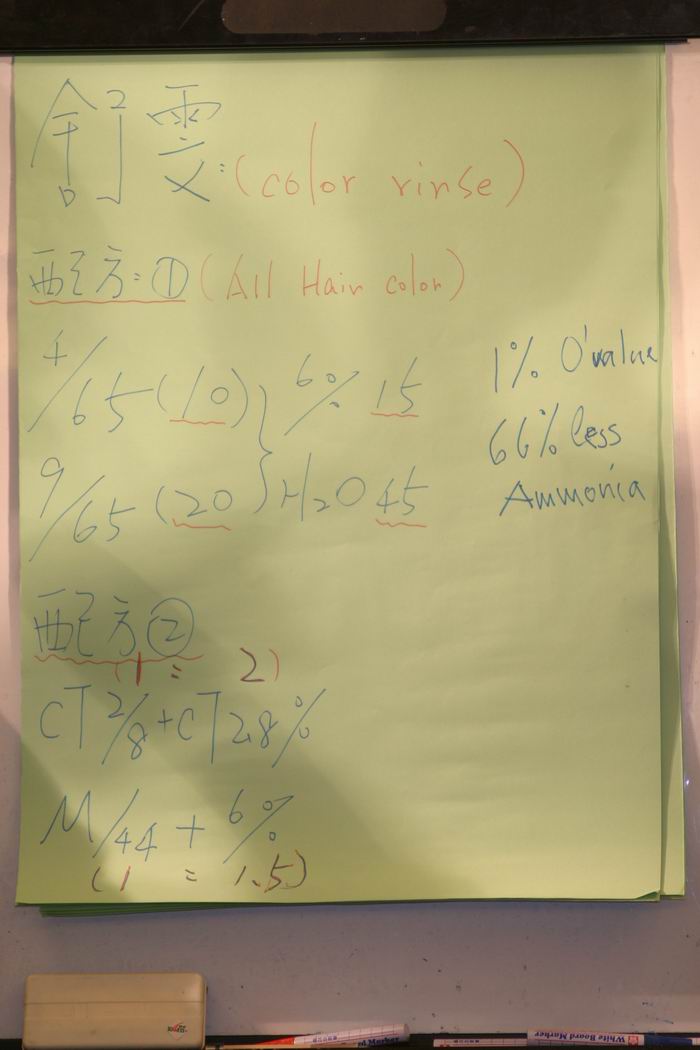 (color rinse)
配方:① (All Hair color)
4/65 (10) } 6% 15
9/65 (20) } H2O 45
1% O'value
66% less
Ammonia
配方②
(1 : 2)
CT 2/8 + CT 2.8%
M/44 + 6%
(1 : 1.5)
White Board Marker